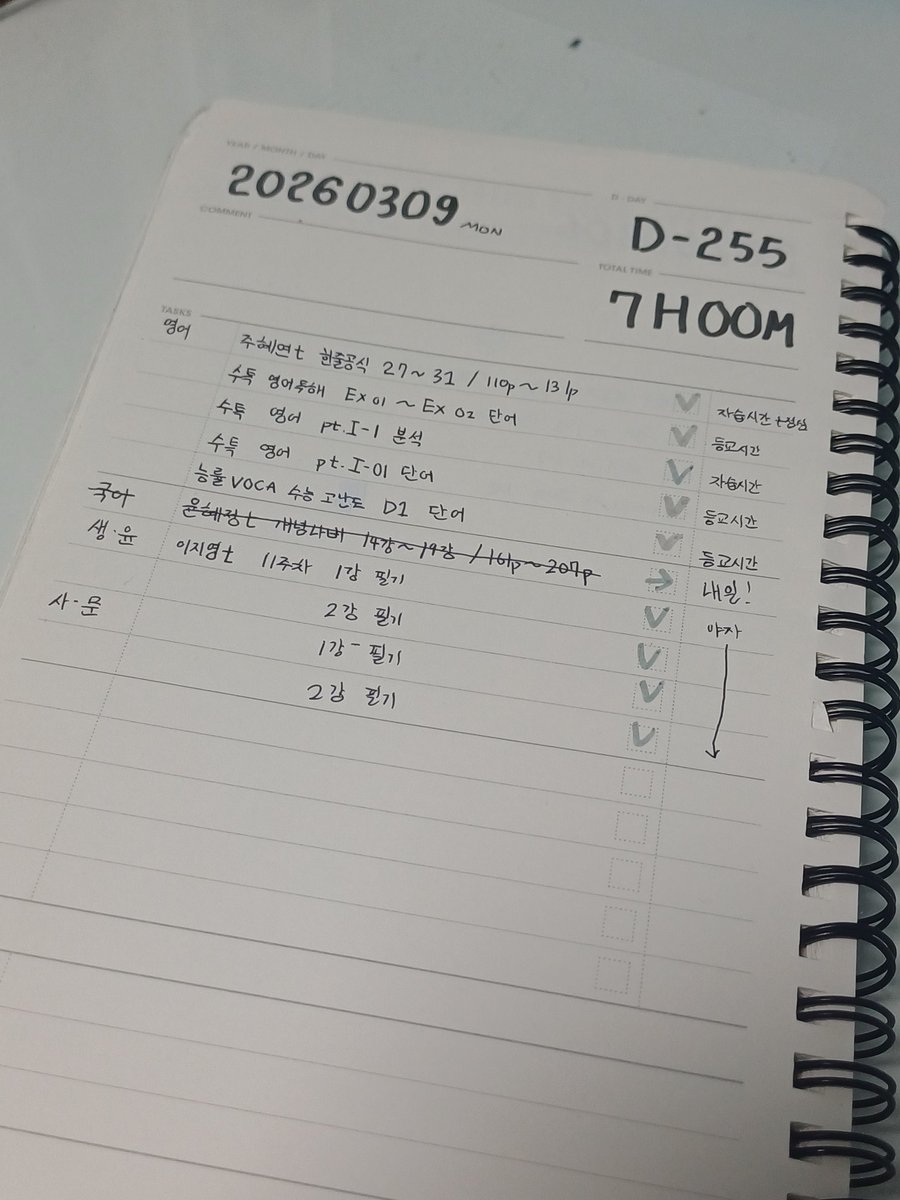 YEAR / MONTH / DAY
20260309 MON
D - DAY
D-255
COMMENT
TOTAL TIME
7H00M
TASKS
영어 주혜연t 한줄공식 27~31 / 110p~131p 자습시간+점심
수특 영어독해 Ex 01 ~ Ex 02 단어 등교시간
수특 영어 pt.I-1 분석 자습시간
수특 영어 pt.I-01 단어 등교시간
능률VOCA 수능 고난도 D1 단어 등교시간
국어 윤혜정t 개념나비 14강~19강 / 161p~207p → 내일!
생·윤 이지영t 11주차 1강 필기 야자
2강 필기
사·문 1강 필기
2강 필기